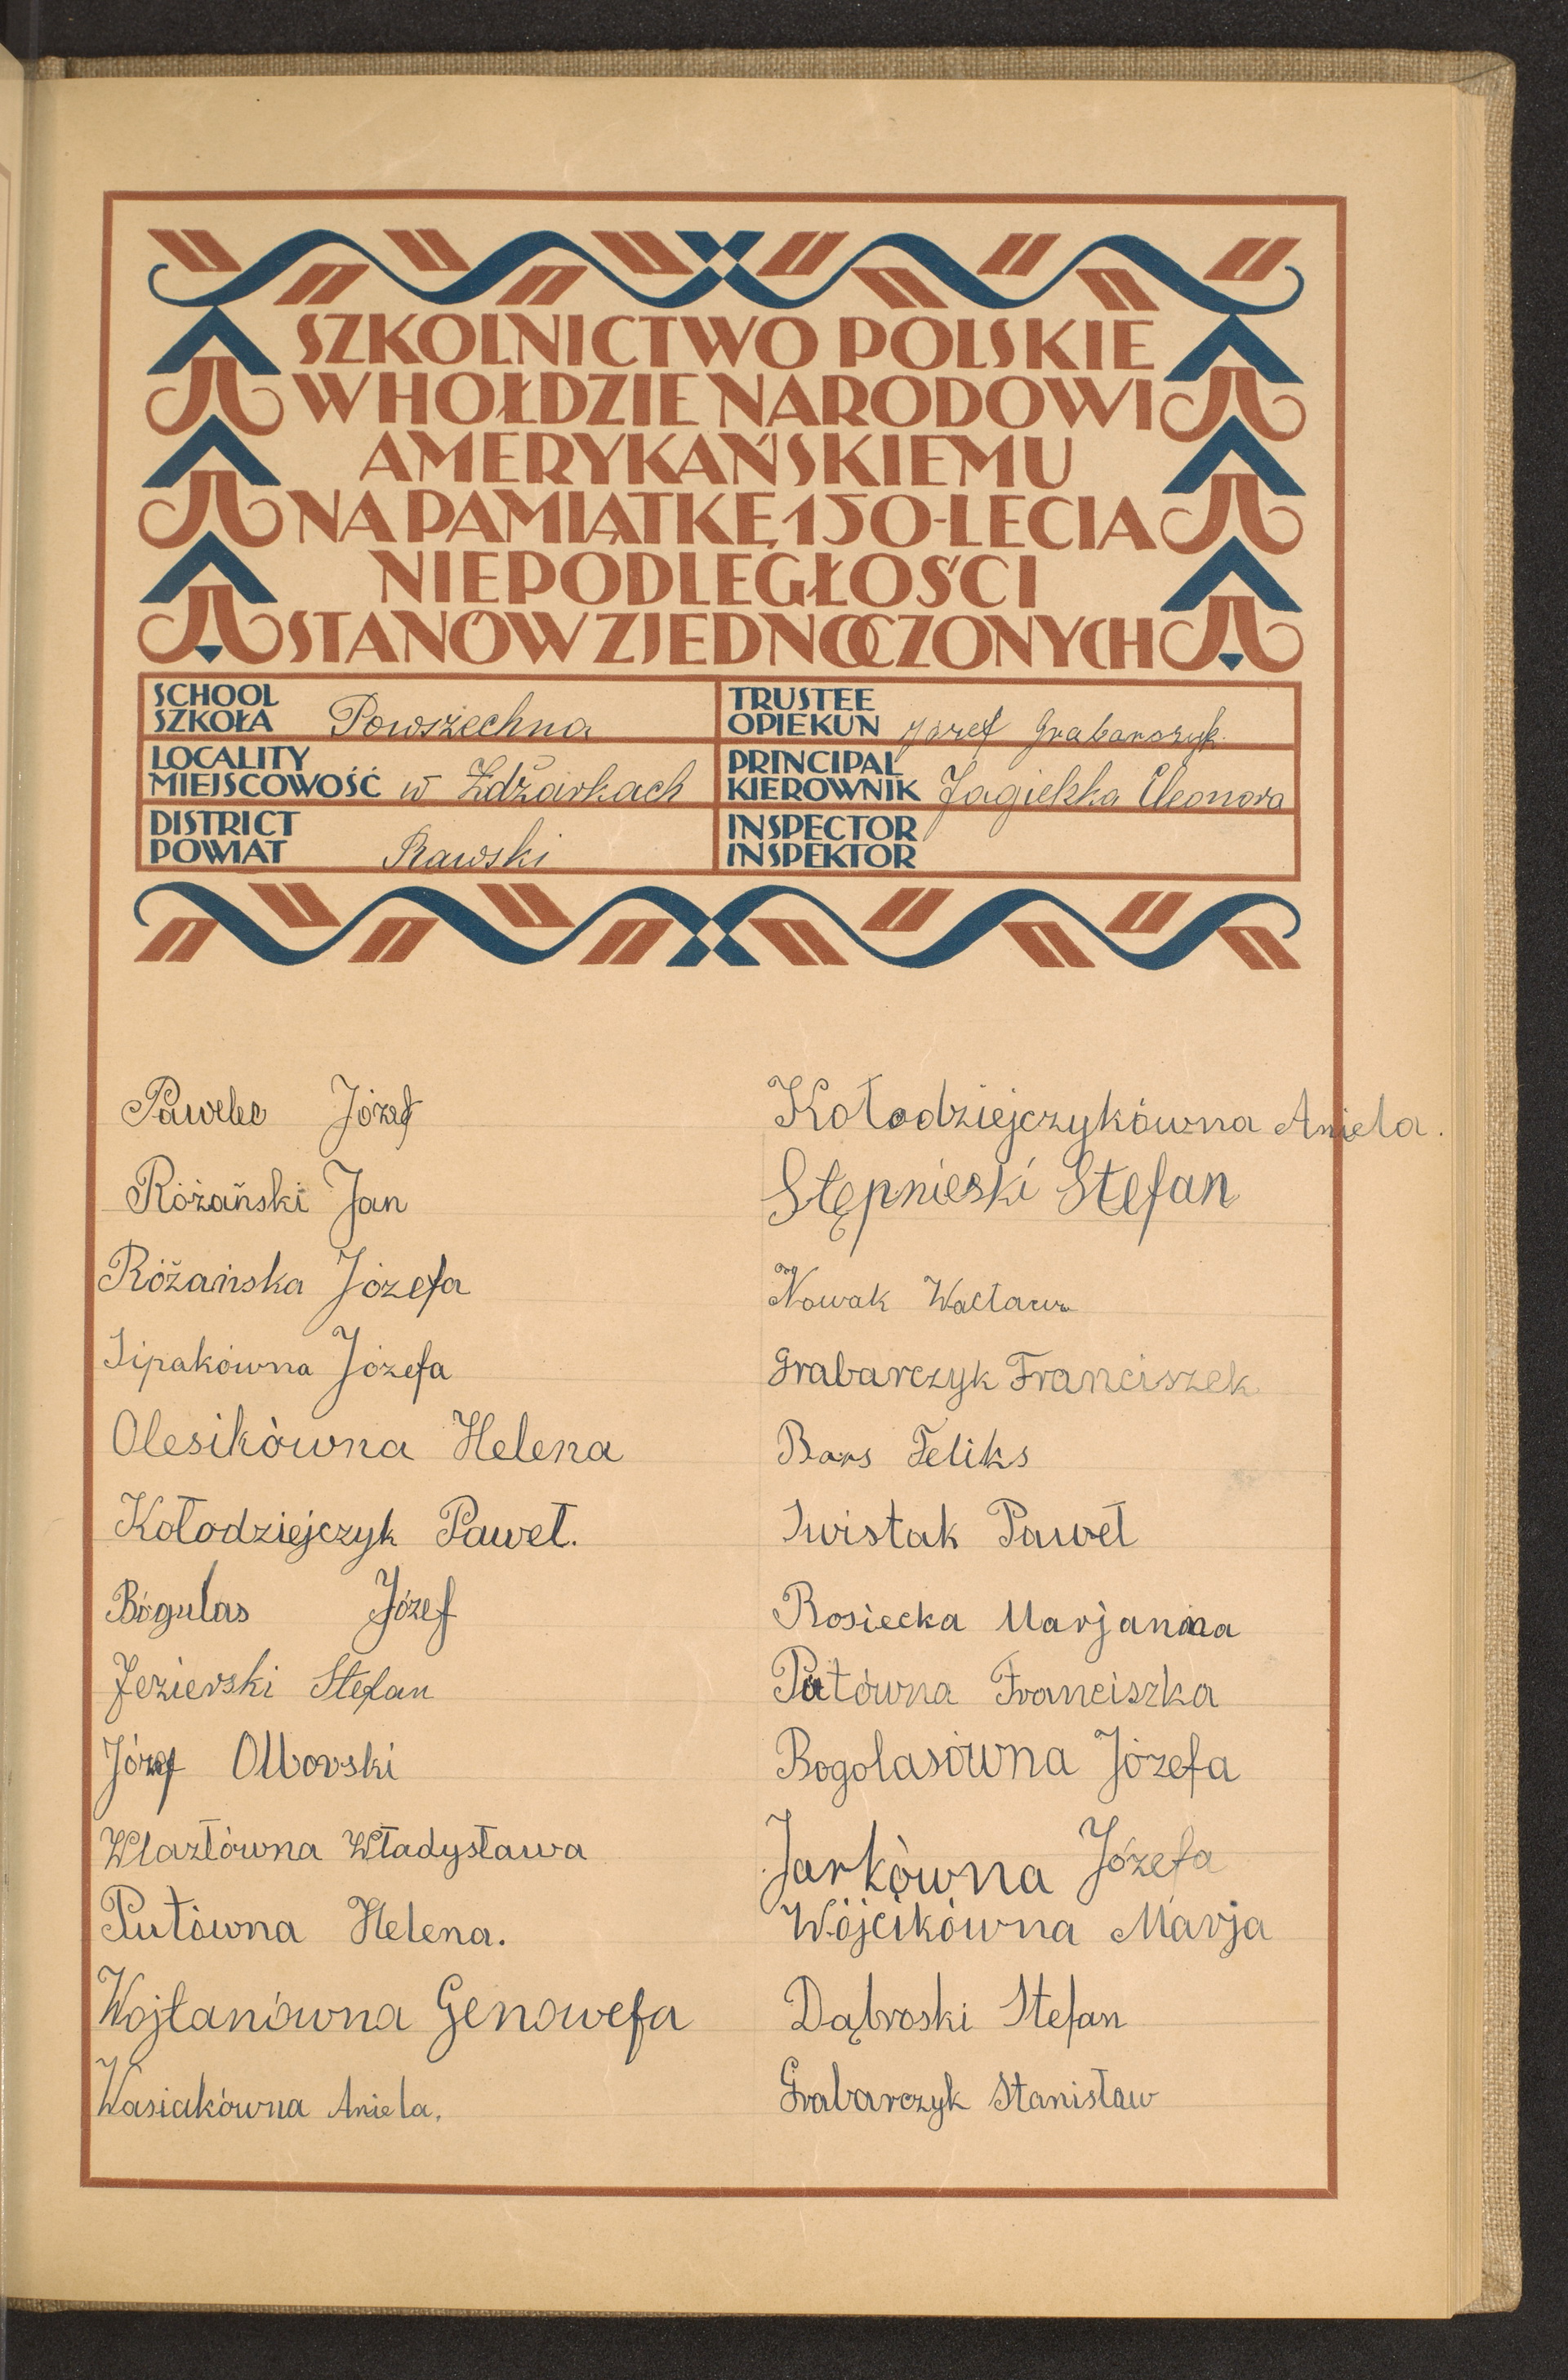 SZKOLNICTWO POLSKIE
W HOŁDZIE NARODOWI
AMERYKAŃSKIEMU
NA PAMIĄTKĘ 150-LECIA
NIEPODLEGŁOŚCI
STANÓW ZJEDNOCZONYCH
SCHOOL
SZKOŁA Powszechna
TRUSTEE
OPIEKUN Józef Grabarczyk
LOCALITY
MIEJSCOWOŚĆ w Zdżarkach
PRINCIPAL
KIEROWNIK Jagielska Eleonora
DISTRICT
POWIAT Rawski
INSPECTOR
INSPEKTOR
Pawelec Józef
Różański Jan
Różańska Józefa
Sipakówna Józefa
Olesikówna Helena
Kołodziejczyk Paweł.
Bógulas Józef
Jezierski Stefan
Józef Olborski
Wlazłówna Władysława
Putówna Helena.
Wojtanówna Genowefa
Wasiakówna Aniela.
Kołodziejczykówna Aniela.
Stępnieski Stefan
Nowak Wacław
Grabarczyk Franciszek
Bars Feliks
Swistak Paweł
Rosiecka Marjanna
Putówna Franciszka
Bogolasówna Józefa
Jarkówna Józefa
Wójcikówna Marja
Dąbroski Stefan
Grabarczyk Stanisław